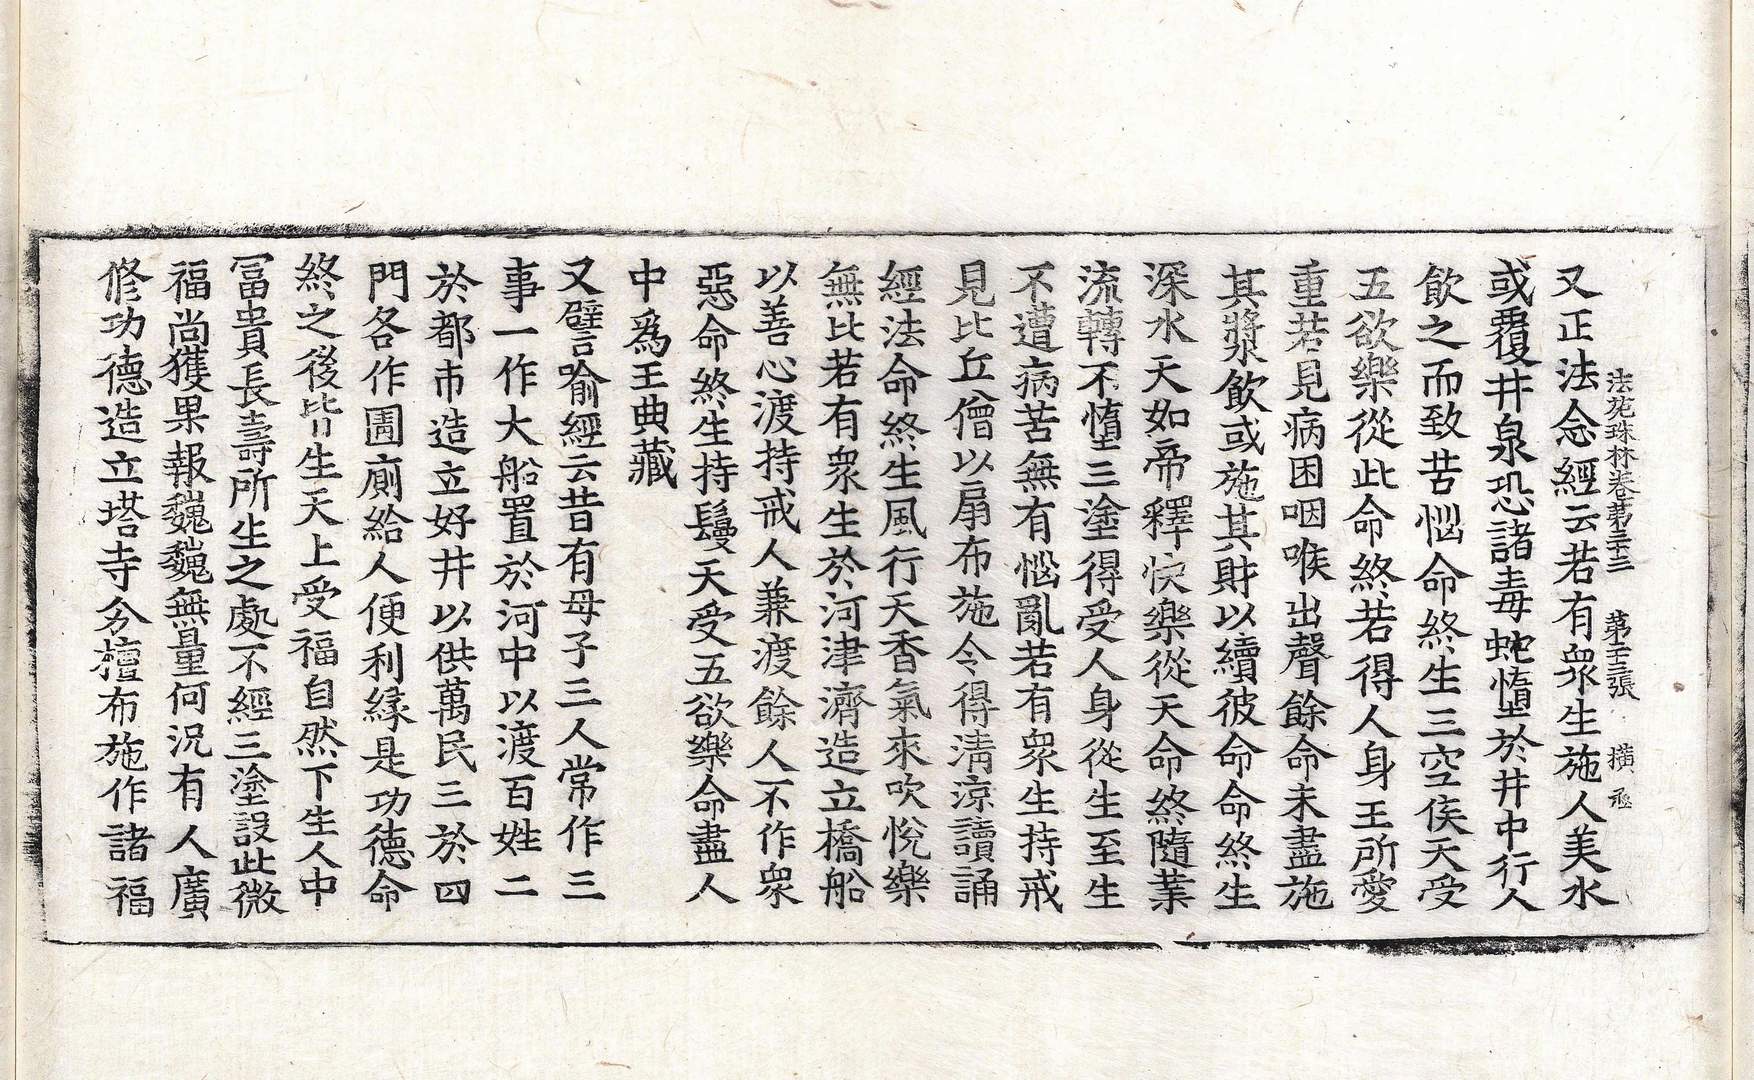 法苑珠林卷第三十三 第二十三張 橫 亟
又正法念經云若有衆生施人美水
或覆井泉恐諸毒蛇墮於井中行人
飲之而致苦惱命終生三空俟天受
五欲樂從此命終若得人身王所愛
重若見病困咽喉出聲餘命未盡施
其漿飲或施其財以續彼命命終生
深水天如帝釋快樂從天命終隨業
流轉不墮三塗得受人身從生至生
不遭病苦無有惱亂若有衆生持戒
見比丘僧以扇布施令得淸涼讀誦
經法命終生風行天香氣來吹悅樂
無比若有衆生於河津濟造立橋船
以善心渡持戒人兼渡餘人不作衆
惡命終生持鬘天受五欲樂命盡人
中爲王典藏
又譬喻經云昔有母子三人常作三
事一作大船置於河中以渡百姓二
於都市造立好井以供萬民三於四
門各作圊廁給人便利緣是功德命
終之後皆生天上受福自然下生人中
冨貴長壽所生之處不經三塗設此微
福尚獲果報巍巍無量何況有人廣
修功德造立塔寺分檀布施作諸福